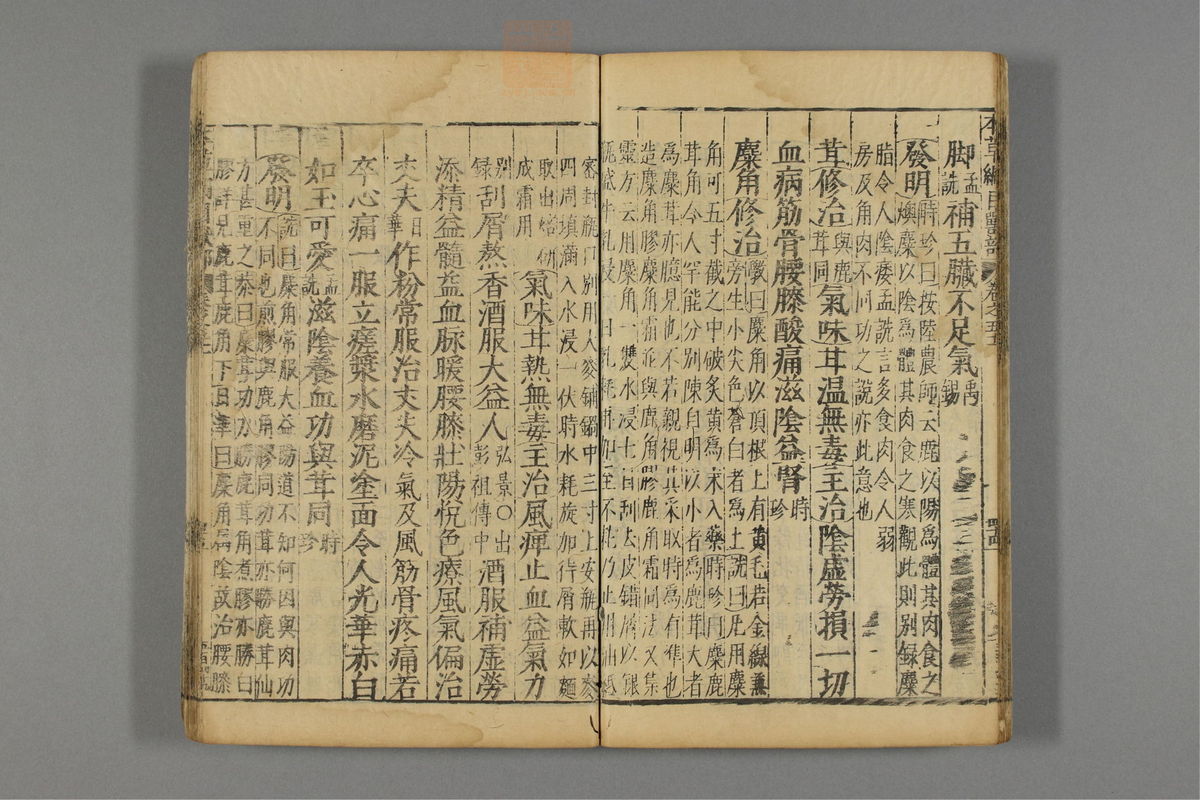 本草綱目獸部 卷之五十一
脚孟詵補五臟不足氣禹錫
發明時珍曰按陸農師云鹿以陽爲體其肉食之
燠麋以陰爲體其肉食之寒觀此則别録麋
脂令人陰痿孟詵言多食肉令人弱
房及角肉不同功之說亦此意也
茸修治與鹿茸同氣味甘温無毒主治陰虛勞損一切
血病筋骨腰膝酸痛滋陰益腎時珍
麋角修治斆曰麋角以頂根上有黄毛若金線兼
旁生小尖色蒼白者爲上詵曰凡用麋
角可五寸截之中破炙黄爲末入藥時珍曰麋鹿
茸角今人罕能分别陳自明以小者爲鹿茸大者
爲麋茸亦臆見也不若親視其采取時爲有準也
造麋角膠麋角霜並與鹿角膠鹿角霜同法又集
靈方云用麋角一雙水浸七日刮去皮錯屑以銀
瓶盛牛乳浸一日乳耗再加至不耗乃止用油紙
密封瓶口别用大麥鋪鍋中三寸上安瓶再以麥
四周填滿入水浸一伏時水耗旋加待屑軟如麵
取出焙研成霜用氣味甘熱無毒主治風痺止血益氣力
别録刮屑熬香酒服大益人弘景○出彭祖傳中酒服補虛勞
添精益髓益血脉暖腰膝壯陽悅色療風氣偏治
丈夫日華作粉常服治丈夫冷氣及風筋骨疼痛若
卒心痛一服立瘥漿水磨泥塗面令人光華赤白
如玉可愛孟詵滋陰養血功與茸同時珍
發明詵曰麋角常服大益陽道不知何因與肉功
不同也煎膠與鹿角膠同功茸亦勝鹿茸仙
方甚重之頌曰麋茸功力勝鹿茸角煮膠亦勝白
膠詳見鹿茸鹿角下日華曰麋角屬陰故治腰膝